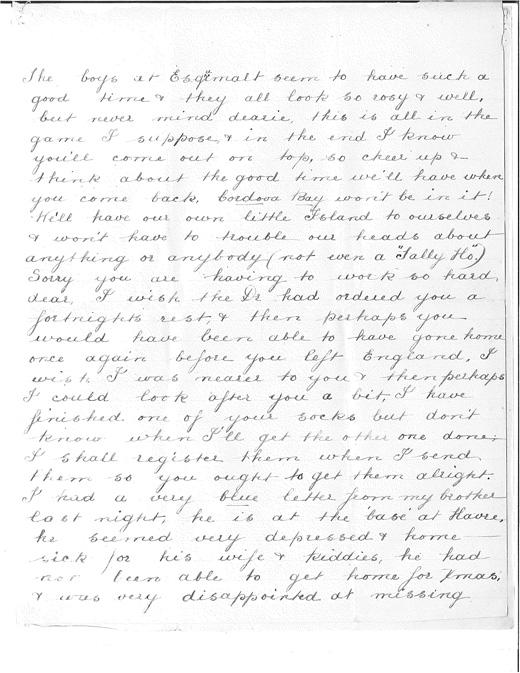 The boys at Esq'malt seem to have such a
good time & they all look so rosy & well,
but never mind dearie, this is all in the
game I suppose, & in the end I know
you'll come out on top, so cheer up &
think about the good time we'll have when
you come back, Cordova Bay won't be in it!
We'll have our own little Island to ourselves
& won't have to trouble our heads about
anything or anybody (not even a "Tally Ho".)
Sorry you are having to work so hard,
dear, I wish the Dr. had ordered you a
fortnight's rest, & then perhaps you
would have been able to have gone home
once again before you left England, I
wish I was nearer to you & then perhaps
I could look after you a bit, I have
finished one of your socks but don't
know when I'll get the other one done;
I shall register them when I send
them so you ought to get them alright.
I had a very blue letter from my brother
last night, he is at the 'base' at Havre,
he seemed very depressed & home
sick for his wife & kiddies, he had
not been able to get home for Xmas,
& was very disappointed at missing